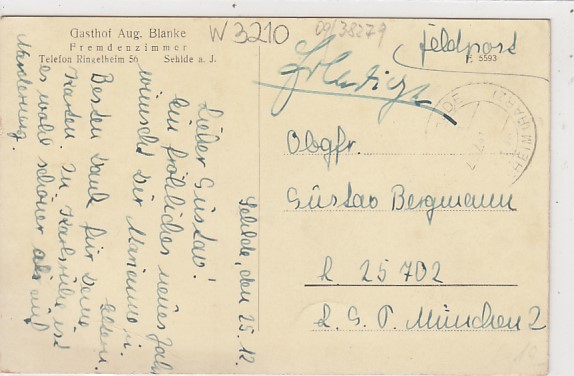 Gasthof Aug. Blanke
Fremdenzimmer
Telefon Ringelheim 56 Sehlde a. J.
W 3210
09/38279
Feldpost
F. 5593
Erledigt
Obgfr.
Güstav Bergmann
L 25702
L. G. P. München 2
Sehlde, den 25.12.
Lieber Güstav!
Ein fröhliches neues Jahr
wünscht Dir Marianne u.
Eltern.
Besten Dank für Deine
Karten. In Karlsruhe ist
es wohl schöner als auf